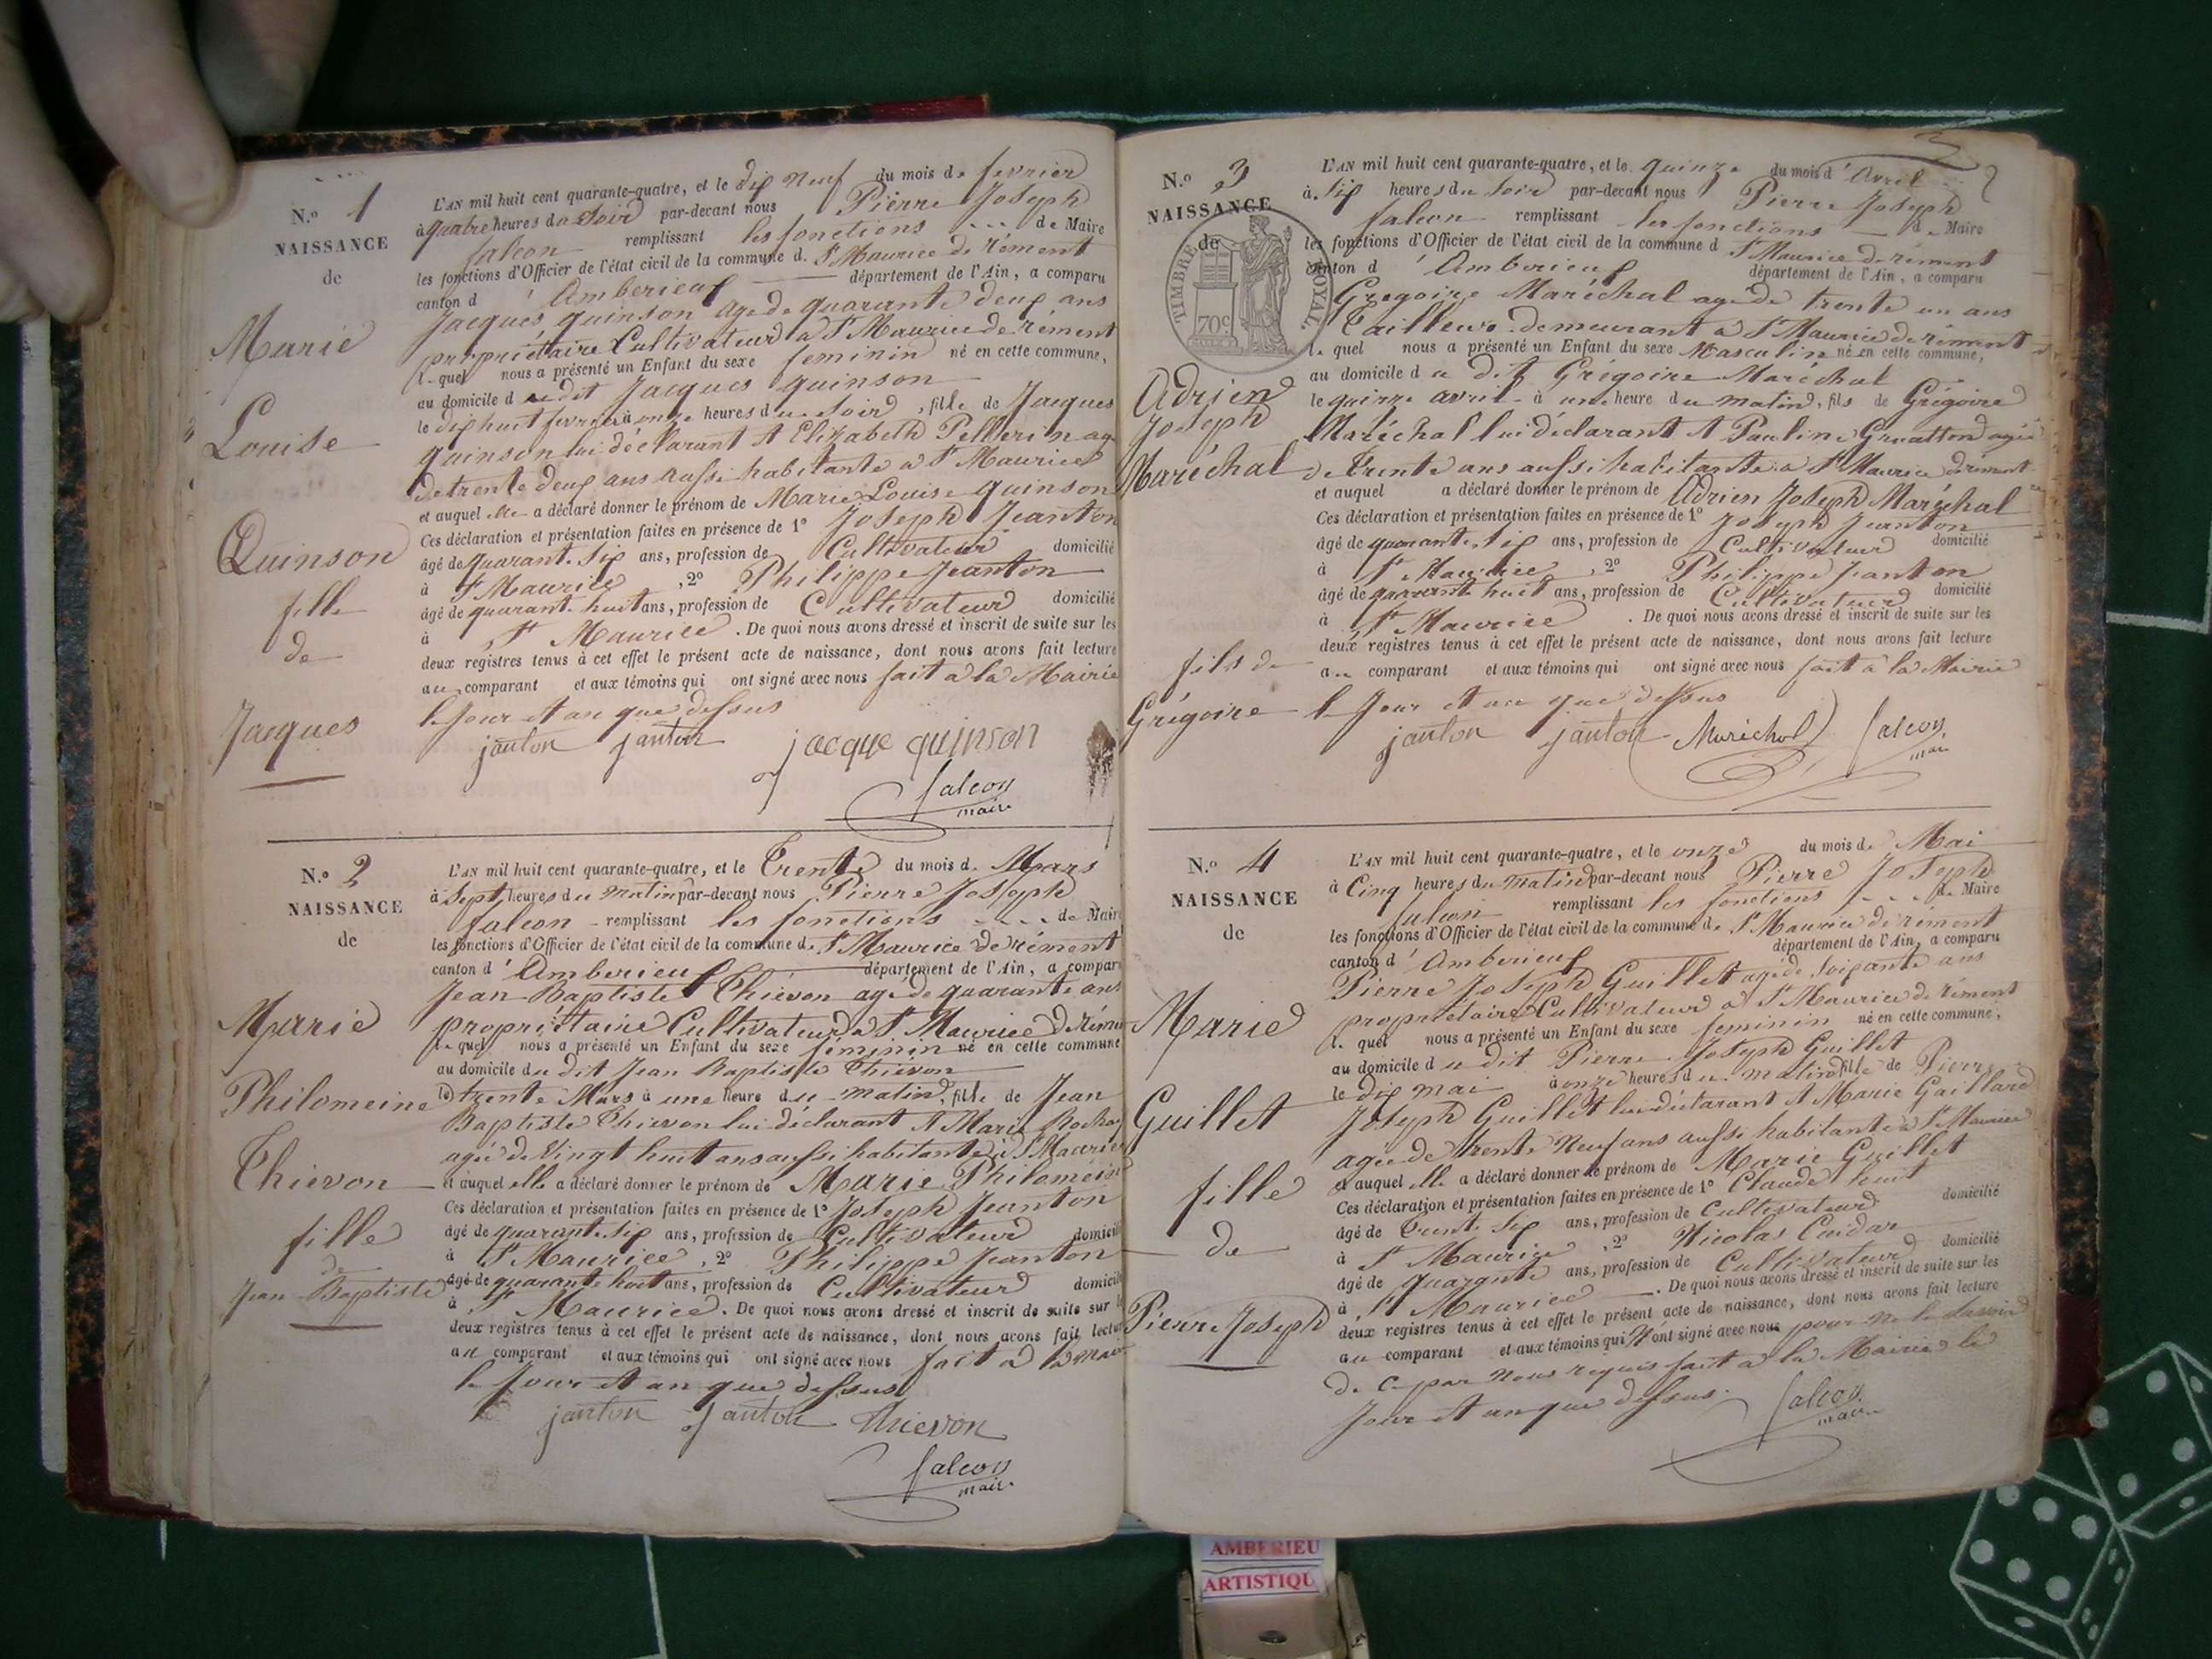 N.o 1
NAISSANCE
de
Marie
Louise
Quinson
fille
de
Jacques
L'AN mil huit cent quarante-quatre, et le dix neuf du mois de fevrier
à quatre heures du Soir par-devant nous Pierre Joseph
falcon remplissant les fonctions de Maire
les fonctions d'Officier de l'état civil de la commune de St Maurice de rément
canton d'Amberieux département de l'Ain, a comparu
Jacques quinson agé de quarante deux ans
propriétaire Cultivateur à St Maurice de rément
Le quel nous a présenté un Enfant du sexe feminin né en cette commune,
au domicile du dit Jacques quinson
le dix huit fevrier à onze heures du Soir, fille de Jacques
quinson lui déclarant et Elizabeth Pellerin agé
de trente deux ans aussi habitante à St Maurice
et auquel elle a déclaré donner le prénom de Marie Louise quinson
Ces déclaration et présentation faites en présence de 1° Joseph Jeanton
âgé de quarante Six ans, profession de Cultivateur domicilié
à St Maurice, 2° Philippe Jeanton
âgé de quarante huit ans, profession de Cultivateur domicilié
à St Maurice. De quoi nous avons dressé et inscrit de suite sur les
deux registres tenus à cet effet le présent acte de naissance, dont nous avons fait lecture
au comparant et aux témoins qui ont signé avec nous fait à la Mairie
le Jour et an que dessus
janton janton jacque quinson
falcon
maire
N.o 2
NAISSANCE
de
Marie
Philomeine
Thievon
fille
de
Jean Baptiste
L'AN mil huit cent quarante-quatre, et le Trente du mois de Mars
à Sept heures du matin par-devant nous Pierre Joseph
falcon remplissant les fonctions de Maire
les fonctions d'Officier de l'état civil de la commune de St Maurice de rément
canton d'Amberieux département de l'Ain, a comparu
Jean Baptiste Thievon agé de quarante ans
propriétaire Cultivateur à St Maurice de rément
Le quel nous a présenté un Enfant du sexe féminin né en cette commune
au domicile du dit Jean Baptiste Thievon
le trente Mars à une heure du matin, fille de Jean
Baptiste Thievon lui déclarant et Marie
agée de Vingt huit ans aussi habitante à St Maurice
et auquel elle a déclaré donner le prénom de Marie Philomeine
Ces déclaration et présentation faites en présence de 1° Joseph Jeanton
âgé de quarante Six ans, profession de Cultivateur domicilié
à St Maurice, 2° Philippe Jeanton
âgé de quarante huit ans, profession de Cultivateur domicilié
à St Maurice. De quoi nous avons dressé et inscrit de suite sur les
deux registres tenus à cet effet le présent acte de naissance, dont nous avons fait lecture
au comparant et aux témoins qui ont signé avec nous fait à la Mairie
le Jour et an que dessus
janton janton thievon
falcon
maire
N.o 3
NAISSANCE
de
TIMBRE ROYAL
70c
Adrien
Joseph
Maréchal
fils de
Grégoire
L'AN mil huit cent quarante-quatre, et le quinze du mois d'Avril
à Six heures du Soir par-devant nous Pierre Joseph
falcon remplissant les fonctions de Maire
les fonctions d'Officier de l'état civil de la commune d St Maurice de rément
canton d'Amberieux département de l'Ain, a comparu
Gregoire Maréchal agé de trente un ans
Tailleur demeurant à St Maurice de rément
Le quel nous a présenté un Enfant du sexe Masculin né en cette commune,
au domicile du dit Gregoire Maréchal
le quinze avril à une heure du matin, fils de Grégoire
Maréchal lui déclarant et Pauline Gruatton agée
de Trente ans aussi habitante à St Maurice de rément
et auquel a déclaré donner le prénom de Adrien Joseph Maréchal
Ces déclaration et présentation faites en présence de 1° Joseph Jeanton
âgé de quarante Six ans, profession de Cultivateur domicilié
à St Maurice, 2° Philippe Jeanton
âgé de quarante huit ans, profession de Cultivateur domicilié
à St Maurice. De quoi nous avons dressé et inscrit de suite sur les
deux registres tenus à cet effet le présent acte de naissance, dont nous avons fait lecture
au comparant et aux témoins qui ont signé avec nous fait à la Mairie
le Jour et an que dessus
janton janton Maréchal falcon
maire
N.o 4
NAISSANCE
de
Marie
Guillet
fille
de
Pierre Joseph
L'AN mil huit cent quarante-quatre, et le onze du mois de Mai
à Cinq heures du matin par-devant nous Pierre Joseph
falcon remplissant les fonctions de Maire
les fonctions d'Officier de l'état civil de la commune de St Maurice de rément
canton d'Amberieux département de l'Ain, a comparu
Pierre Joseph Guillet agé de Soixante ans
propriétaire Cultivateur à St Maurice de rément
Le quel nous a présenté un Enfant du sexe feminin né en cette commune,
au domicile du dit Pierre Joseph Guillet
le dix mai à onze heures du matin fille de Pierre
Joseph Guillet lui déclarant et Marie Gaillard
agée de trente Neuf ans aussi habitante à St Maurice
et auquel elle a déclaré donner le prénom de Marie Guillet
Ces déclaration et présentation faites en présence de 1° Claude
âgé de Trente Six ans, profession de Cultivateur domicilié
à St Maurice, 2° Nicolas
âgé de quarante ans, profession de Cultivateur domicilié
à St Maurice. De quoi nous avons dressé et inscrit de suite sur les
deux registres tenus à cet effet le présent acte de naissance, dont nous avons fait lecture
au comparant et aux témoins qui N'ont signé avec nous pour ne le Savoir
de ce par Nous requis fait à la Mairie le
Jour et an que dessus.
falcon
maire
AMBERIEU
ARTISTIQU